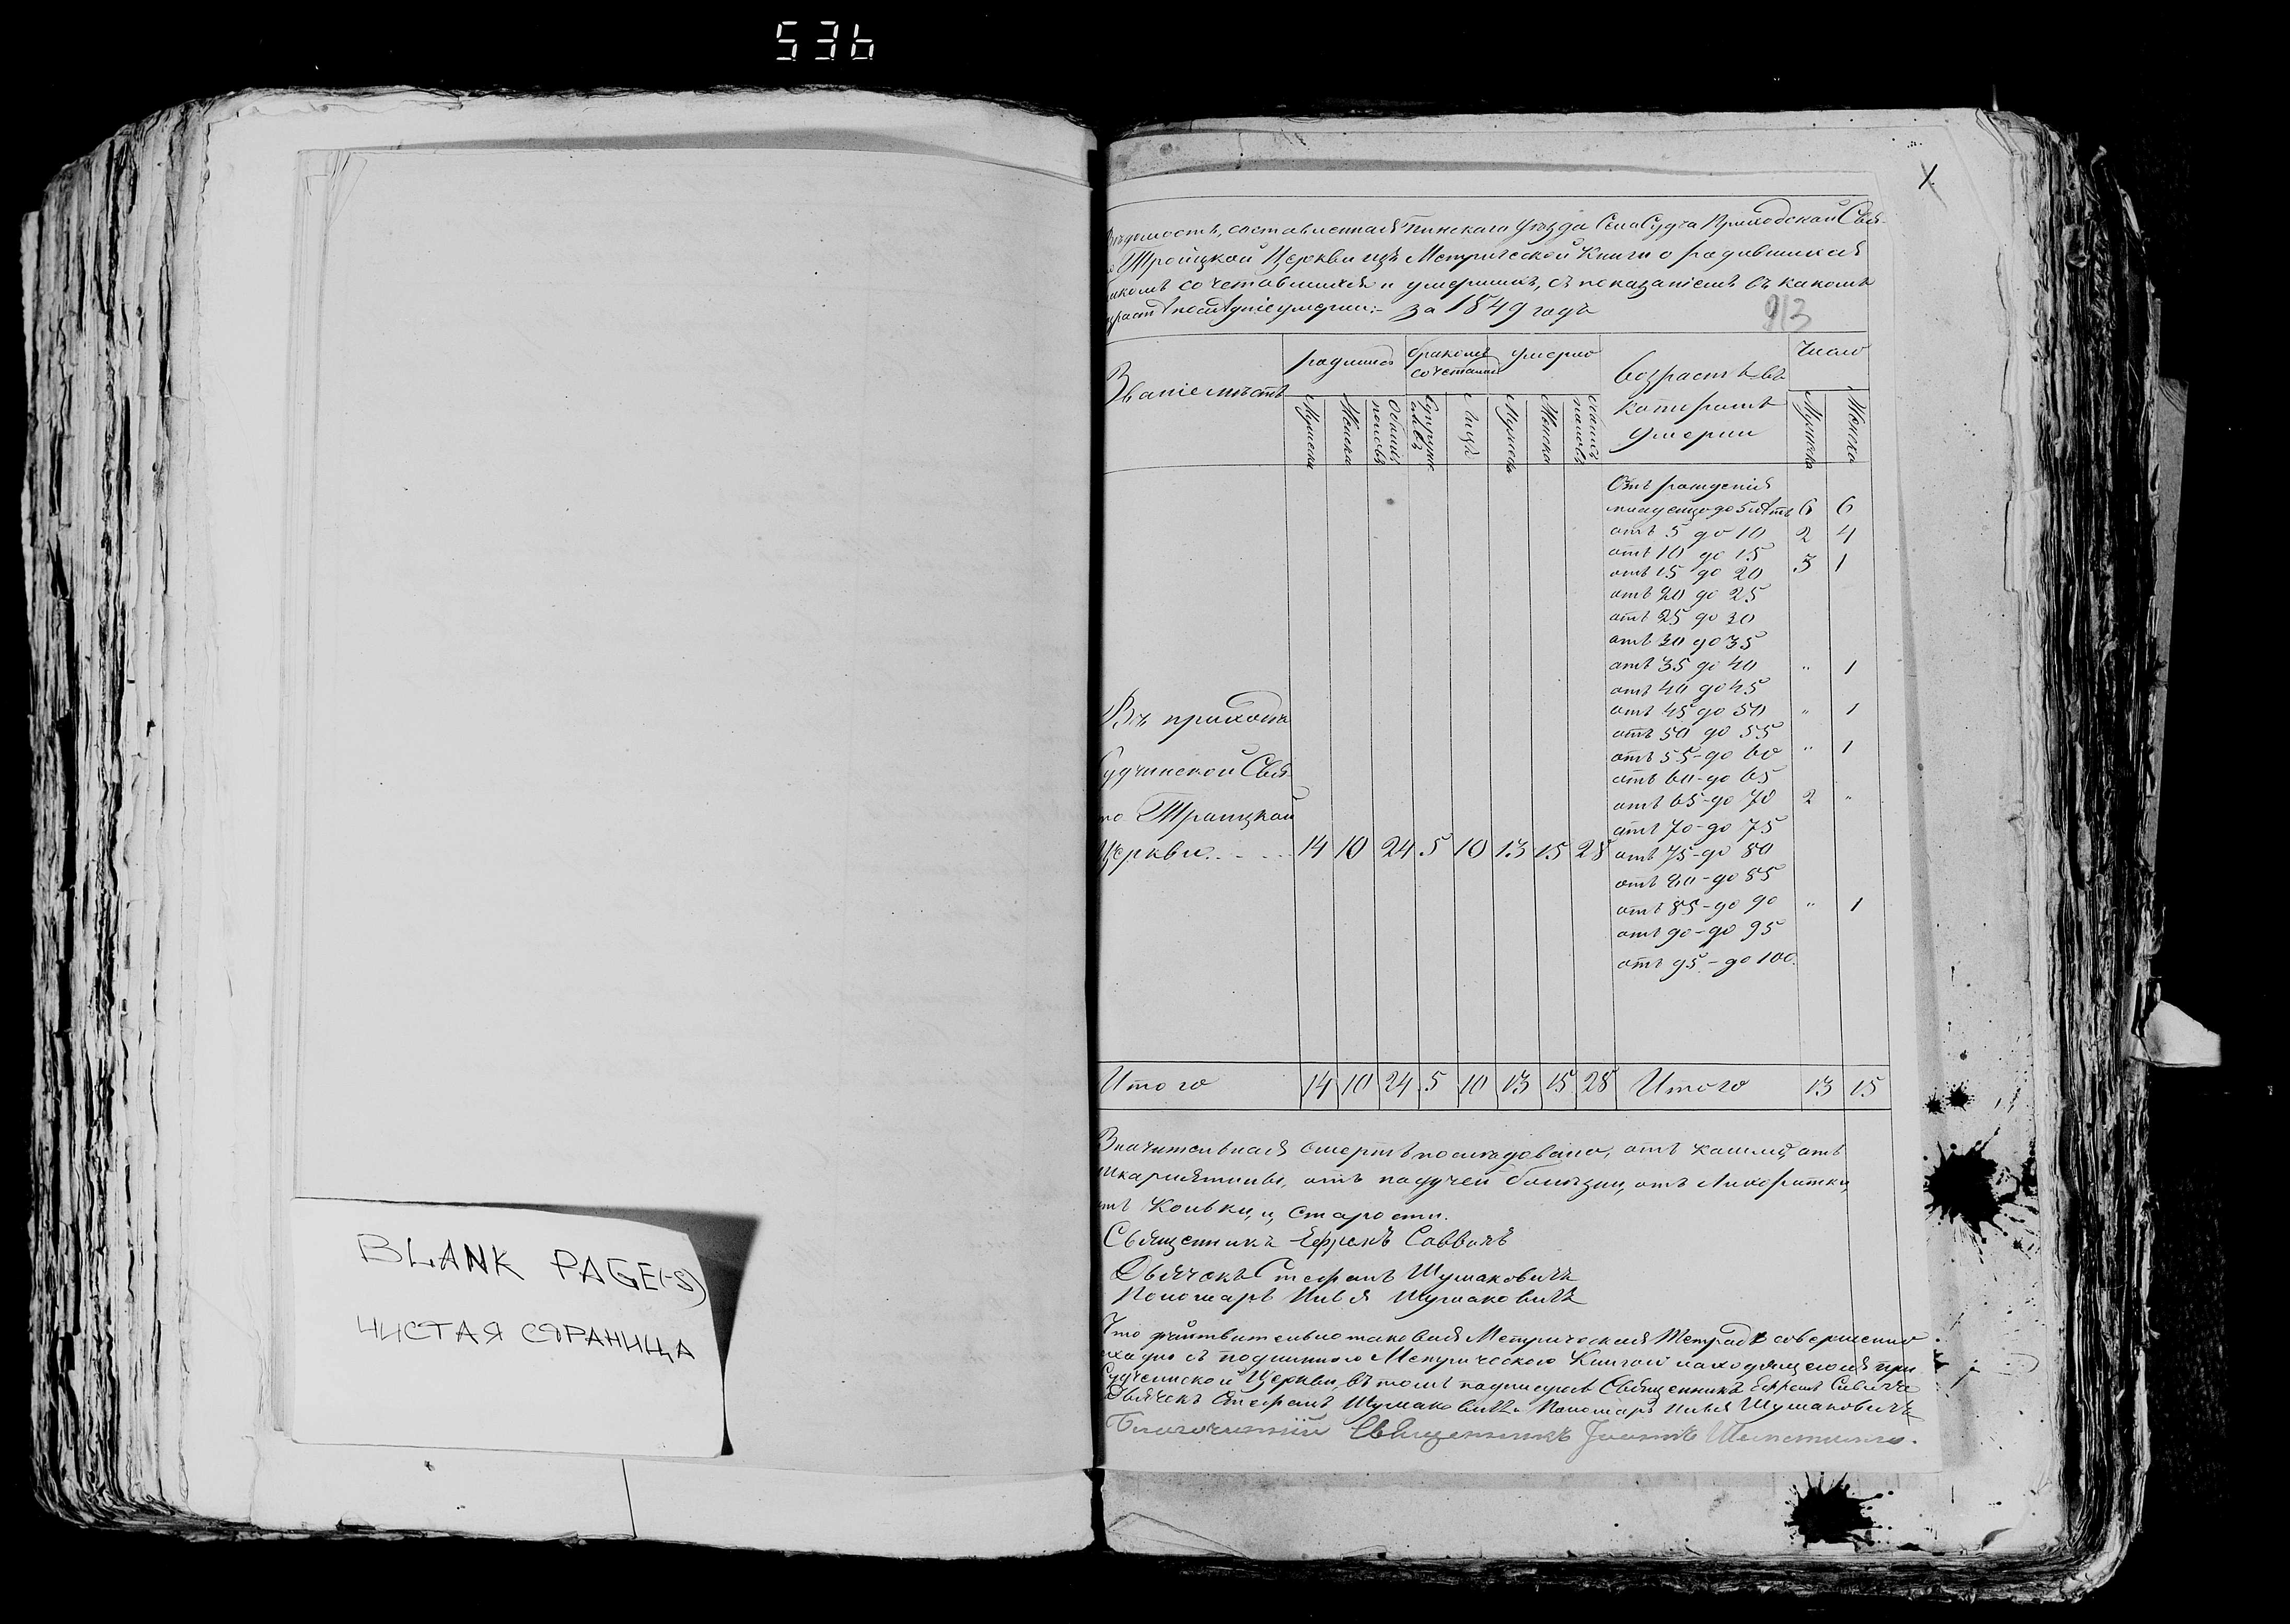 536
BLANK PAGE(-S)
ЧИСТАЯ СТРАНИЦА
Вѣдомость, составленная Пинскаго Уѣзда Села Судча Приходской Свя-
то Троицкой Церкви изъ Метрической Книги о родившихся
бракомъ сочетавшихся и умершихъ, съ показаніемъ въ какомъ
возрастѣ послѣдніе умерли:- за 1849 годъ
913
Званіе мѣстъ
родилось
бракомъ сочетано
умерло
возрастъ въ
которомъ
умерли
Число
Мужеска
Женска
Обоихъ половъ
Супружествъ
Лицъ
Мужеска
Женска
обоихъ половъ
Мужеска
Женска
Отъ рожденія
младенцо до 5 лѣтъ 6 6
отъ 5 до 10 2 4
отъ 10 до 15 3 1
отъ 15 до 20
отъ 20 до 25
отъ 25 до 30
отъ 30 до 35
отъ 35 до 40 " 1
отъ 40 до 45
отъ 45 до 50 " 1
отъ 50 до 55
отъ 55-до 60 " 1
отъ 60-до 65
отъ 65-до 70 2 "
отъ 70-до 75
отъ 75-до 80
отъ 80-до 85
отъ 85-до 90 " 1
отъ 90-до 95
отъ 95-до 100.
Въ приходѣ
Судчинской Свя-
то Троицкой
Церкви 14 10 24 5 10 13 15 28
Итого 14 10 24 5 10 13 15 28 Итого 13 15
Значительная смерть последовала, отъ кашля, отъ
шкарлятины, отъ падучей болезни, отъ Лихоратки,
отъ Кольки, и Старости.
Священникъ Ефремъ Саввичъ
Дьячекъ Стефанъ Шумаковичъ
Пономарь Илья Шумаковичъ
Что дѣйствительно таковая Метрическая Тетрадь совершенно
сходна съ подлинною Метрическою Книгою находящеюся при
Судчинской Церкви, въ томъ подписуюсь Священникъ Ефремъ Саввичъ
Дьячекъ Стефанъ Шумаковичъ Пономарь Илья Шумаковичъ
Благочинный Священникъ Іоаннъ